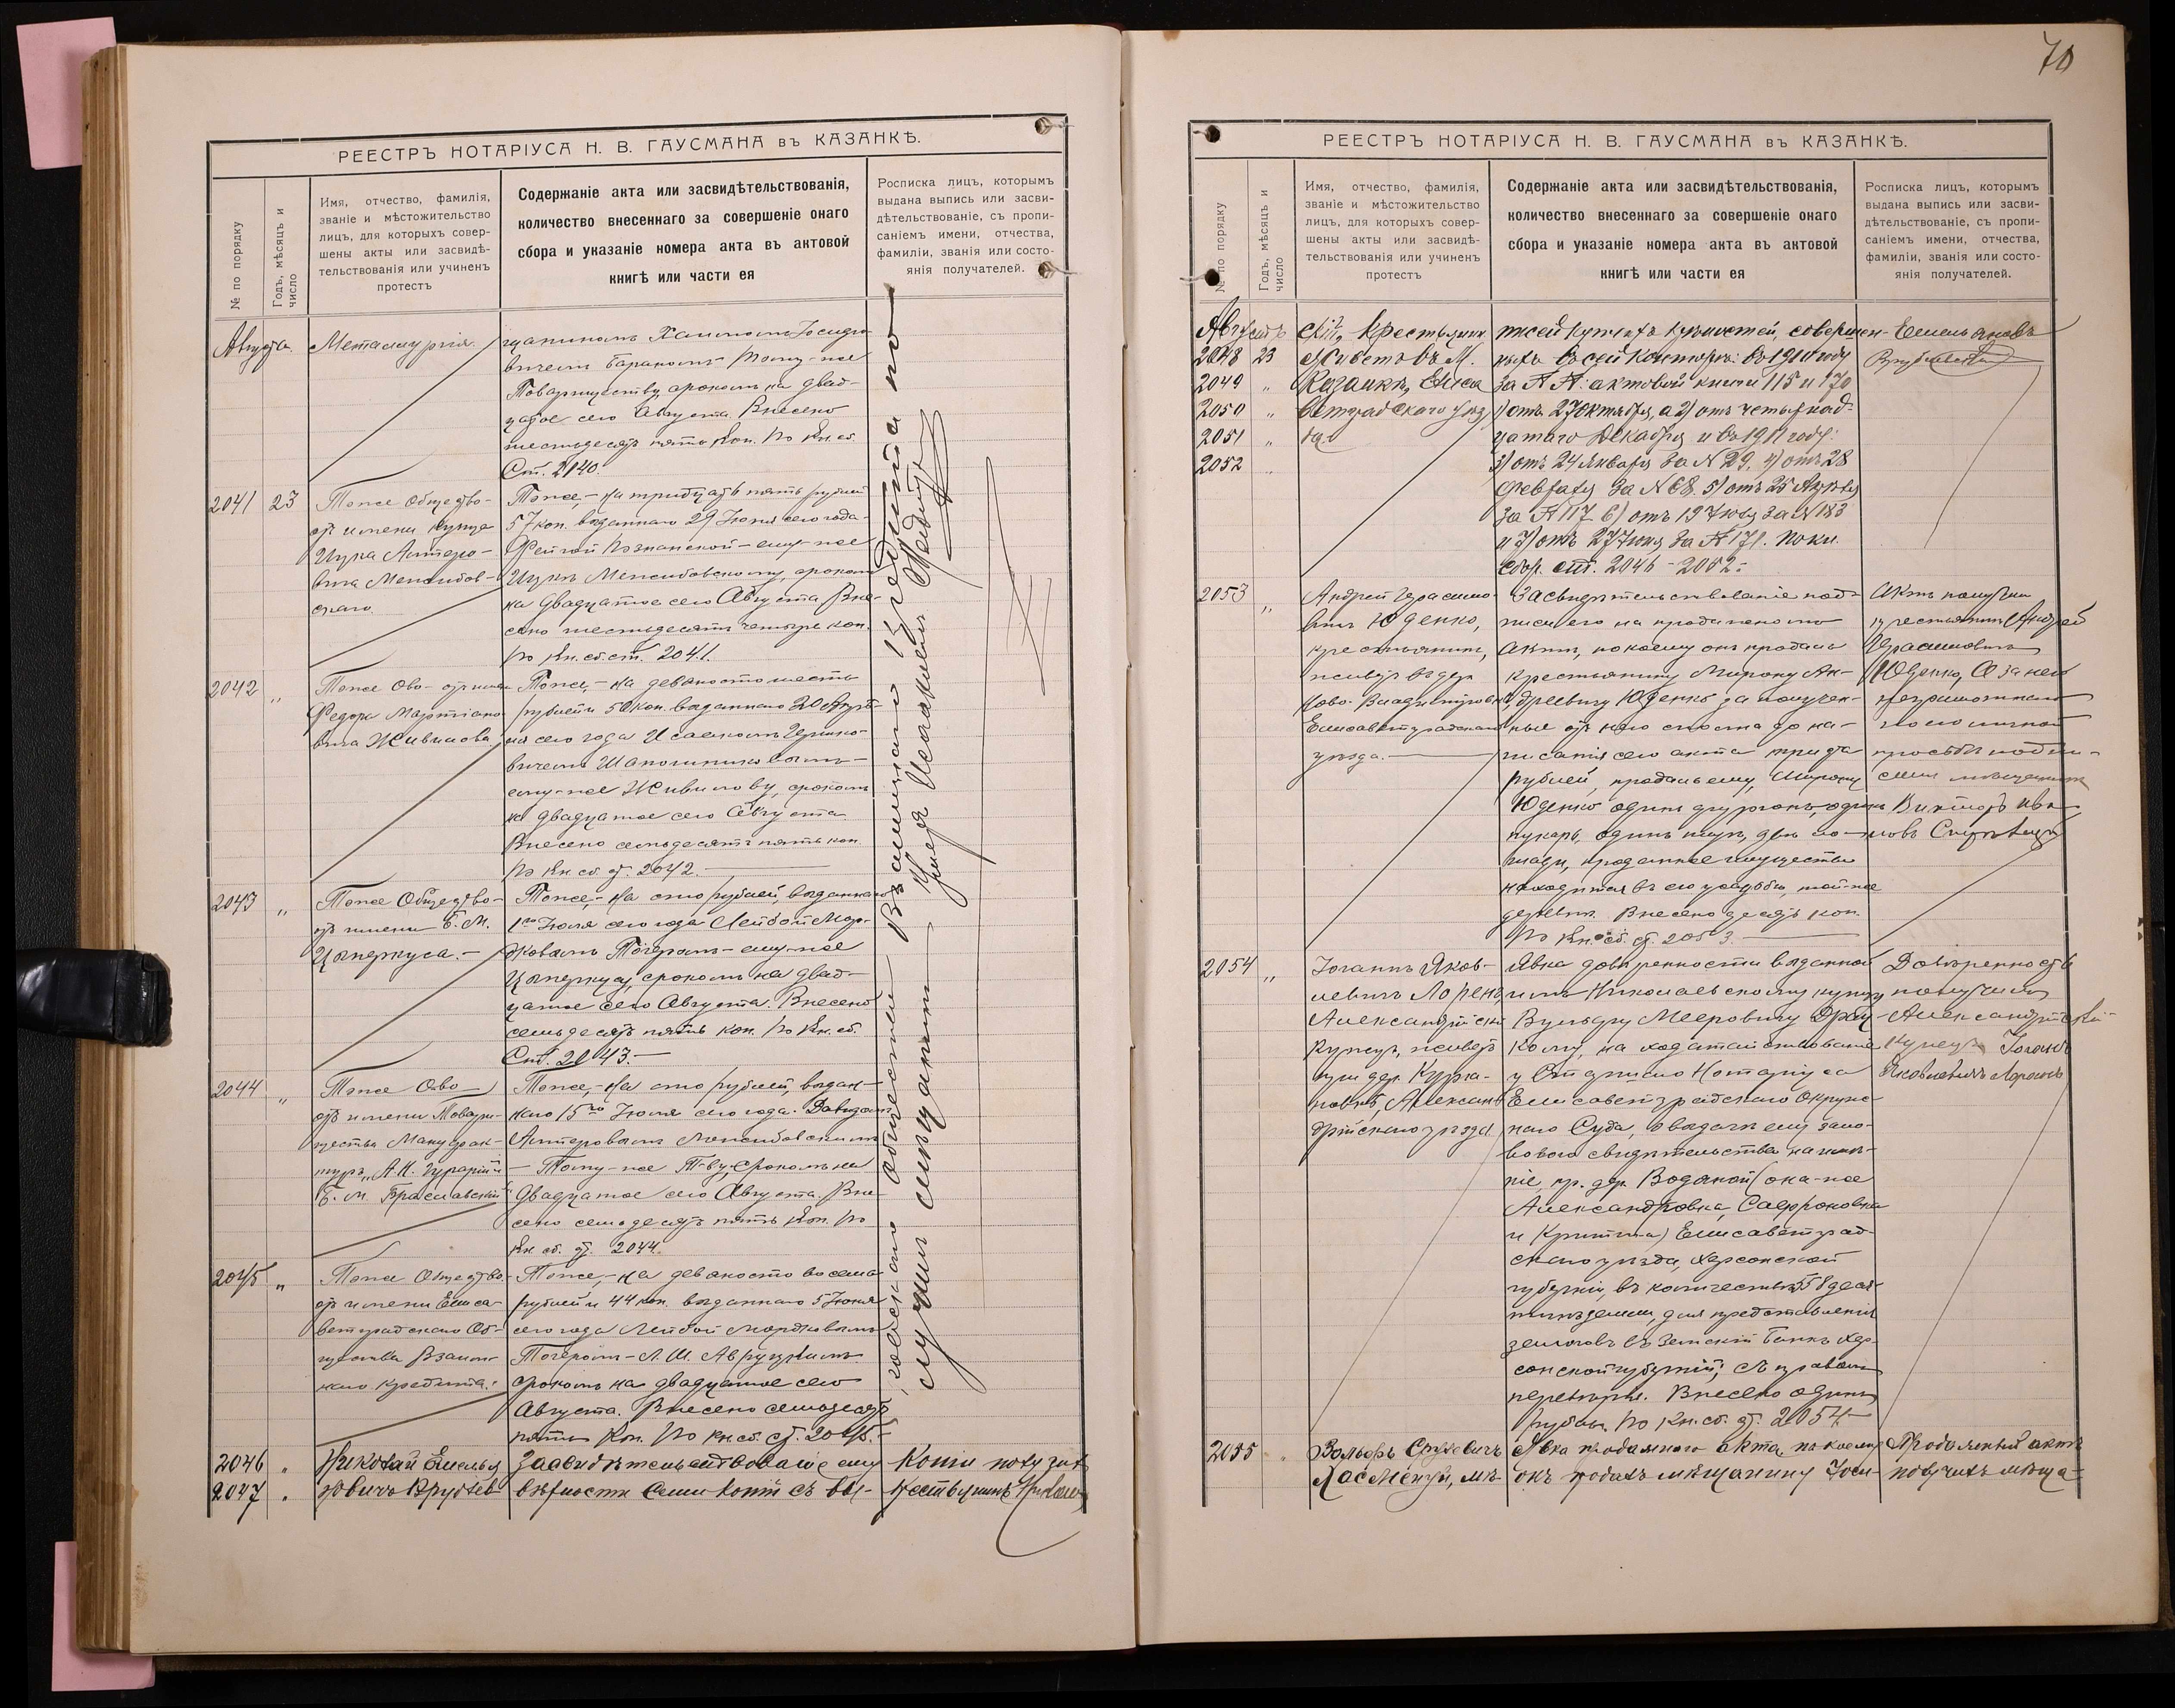 РЕЕСТРЪ НОТАРІУСА Н. В. ГАУСМАНА въ КАЗАНКѢ.
№ по порядку
Годъ, мѣсяцъ и число
Имя, отчество, фамилія,
званіе и мѣстожительство
лицъ, для которыхъ совер-
шены акты или засвидѣ-
тельствованія или учиненъ
протестъ
Содержаніе акта или засвидѣтельствованія,
количество внесеннаго за совершеніе онаго
сбора и указаніе номера акта въ актовой
книгѣ или части ея
Росписка лицъ, которымъ
выдана выпись или засви-
дѣтельствованіе, съ пропи-
саніемъ имени, отчества,
фамиліи, званія или состо-
янія получателей.
Августа.
Металлургія.
щаниномъ Хаимомъ
вичемъ Барановымъ тому-же
Товариществу, срокомъ на двад-
цатое сего Августа. Внесено
шестьдесятъ пять коп. По кн. сб.
Ст. 2140.
2041 23
Тоже Общество-
отъ имени купца
Ицка
вича Менджибов-
скаго.
Тоже,- на тридцать пять рублей
57 коп. выданнаго 29 Іюня сего года
Познанской - ему-же
Ицкѣ Менджибовскому, срокомъ
на двадцатое сего Августа. Вне-
сено шестьдесятъ четыре коп.
По кн. сб. ст. 2041.
2042 "
Тоже О-во - отъ имени
Федора
вича Живилова
Тоже,- на девяносто шесть
рублей и 50 коп. выданнаго 20 Апрѣ-
ля сего года Исаакомъ
вичемъ
ему-же Живилову, срокомъ
на двадцатое сего Августа
Внесено семьдесятъ пять коп
По кн. сб. ст. 2042.
2043 "
Тоже Общество-
отъ имени Б. М.
Циперкуса.-
Тоже,- на сто рублей, выданнаго
1го Іюля сего года Лейбой Мор-
дковымъ Тогеромъ - ему-же
Циперкусу, срокомъ на двад-
цатое сего Августа. Внесено
семьдесятъ пять коп. По кн. сб.
Ст. 2043.-
2044 "
Тоже О-во
отъ имени Товари-
щества Мануфак-
туръ „А. И. Гурарій и
Б. М. Браславскій“
Тоже,- на сто рублей, выдан-
наго 15го Іюля сего года Давидомъ
Менджибовскимъ
- Тому-же Т-ву, срокомъ на
двадцатое сего Августа. Вне-
сено семьдесятъ пять коп. По
кн. сб. ст. 2044.
2045 "
Тоже Общество-
отъ имени Елиса-
ветградскаго Об-
щества Взаим-
наго Кредита.
Тоже,- на девяносто восемь
рублей и 44 коп. выданнаго 5 Іюня
сего года Лейбой Мордковымъ
Тогеромъ - Л. Ш.
срокомъ на двадцатое сего
Августа. Внесено семьдесятъ
пять коп. По кн. сб. ст. 2045.-
2046 "
2047 "
Николай Емелья
новичъ Врублев
Засвидѣтельствованіе ему
вѣрности семи копій съ вы-
Копіи получилъ
крестьянинъ Николай
70
РЕЕСТРЪ НОТАРІУСА Н. В. ГАУСМАНА въ КАЗАНКѢ.
№ по порядку
Годъ, мѣсяцъ и число
Имя, отчество, фамилія,
званіе и мѣстожительство
лицъ, для которыхъ совер-
шены акты или засвидѣ-
тельствованія или учиненъ
протестъ
Содержаніе акта или засвидѣтельствованія,
количество внесеннаго за совершеніе онаго
сбора и указаніе номера акта въ актовой
книгѣ или части ея
Росписка лицъ, которымъ
выдана выпись или засви-
дѣтельствованіе, съ пропи-
саніемъ имени, отчества,
фамиліи, званія или состо-
янія получателей.
Августъ
2048 23
2049 "
2050 "
2051 "
2052 "
скій, крестьянинъ
живетъ въ М.
Казанкѣ, Елиса
ветградскаго уѣз
да.
писей купчихъ крѣпостей, совершен-
ныхъ въ сей конторѣ: въ 1910 году
за №№ актовой книги 115 и 170
1) отъ 27 Октября, а 2) отъ четырнад-
цатаго Декабря и въ 1911 году:
3) отъ 24 Января за № 29, 4) отъ 28
Февраля за № 68. 5) отъ 25 Апрѣля
за № 117 6) отъ 19 Іюля за № 183
и 7) отъ 27 Іюня за № 171. По кн.
сбор. ст. 2046 - 2052.-
Емельяновъ
Врублевскій
2053 "
Андрей Герасимо-
вичъ Юденко,
крестьянинъ,
живетъ въ дер.
Ново-Владимировкѣ,
Елисаветградскаго
уѣзда.
Засвидѣтельствованіе под-
писи его на продажномъ
актѣ, по коему онъ продалъ
крестьянину Мирону Ан-
дреевичу Юденко за получен-
ные отъ него сполна до на-
писанія сего акта триста
рублей, продалъ ему, Мирону
Юденко одинъ фургонъ, одинъ
букарь, одинъ плугъ, двѣ ло-
шади, проданное имущество
находится въ его усадьбѣ, той-же
деревнѣ. Внесено десять коп.
По кн. сб. ст. 2053.
Актъ получилъ
крестьянинъ Андрей
Герасимовичъ
Юденко, а за него
неграмотнаго
по его личной
просьбѣ
Викторъ Ива-
новъ
2054 "
Іоганъ Яков-
левичъ Лоренцъ,
Александрійскій
купецъ, живетъ
при дер. Курма-
новкѣ, Алексан-
дрійскаго уѣзда
Явка довѣренности выданной
имъ Николаевскому купцу
Вульфу Мееровичу
кому, на ходатайствованіе
у Старшаго Нотаріуса
Елисаветградскаго Окруж-
наго Суда, о выдачѣ ему зало-
говаго свидѣтельства на имѣ-
ніе, пр. дер. Водяной (она-же
Александровка, Сафроновка
и Крутая) Елисаветград-
скаго уѣзда, Херсонской
губерніи, въ количествѣ 558 деся-
тинъ земли, для представленія
залоговъ въ Земскій Банкъ Хер-
сонской губерніи, съ правомъ
передовѣрія. Внесено одинъ
рубль. По кн. сб. ст. 2054.-
Довѣренность
получилъ
Александрійскій
купецъ Іоганъ
Яковлевичъ Лоренцъ
2055 "
Вольфъ Срулевичъ
мѣ-
Явка продажнаго акта, по коему
онъ продалъ мѣщанину Іоси-
Продажный актъ
получилъ мѣща-